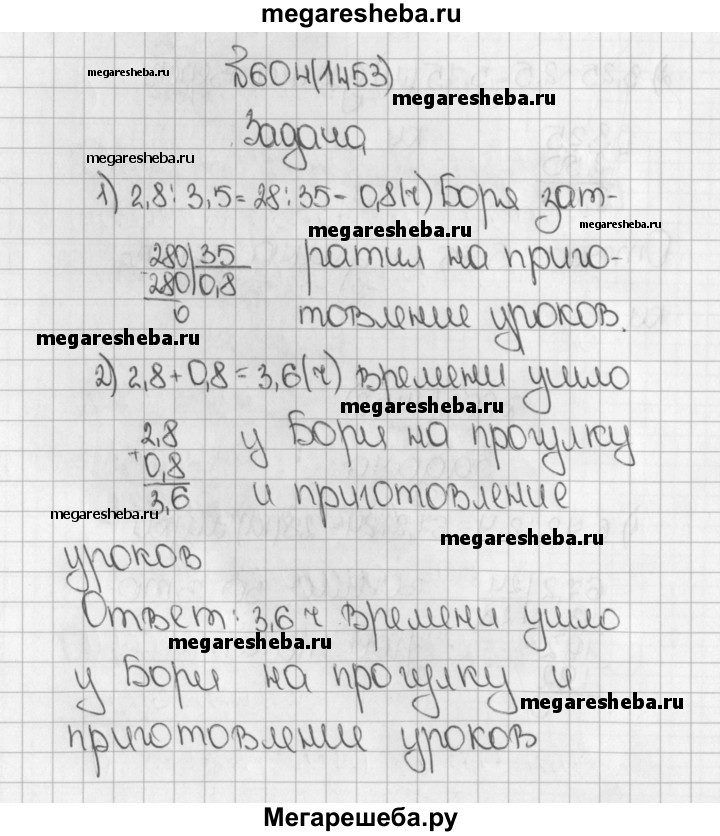 megaresheba.ru
№604(1453)
megaresheba.ru
megaresheba.ru
Задача
megaresheba.ru
1) 2,8 : 3,5 = 28 : 35 - 0,8(ч) Боря зат-
megaresheba.ru
megaresheba.ru
280|35 ратил на приго-
-280|0,8
0 товление уроков.
megaresheba.ru
2) 2,8 + 0,8 = 3,6(ч) времени ушло
megaresheba.ru
2,8 у Бори на прогулку
+0,8
3,6 и приготовление
megaresheba.ru
megaresheba.ru
уроков
Ответ: 3,6 ч времени ушло
megaresheba.ru
у Бори на прогулку и
megaresheba.ru
приготовление уроков
Мегарешеба.ру